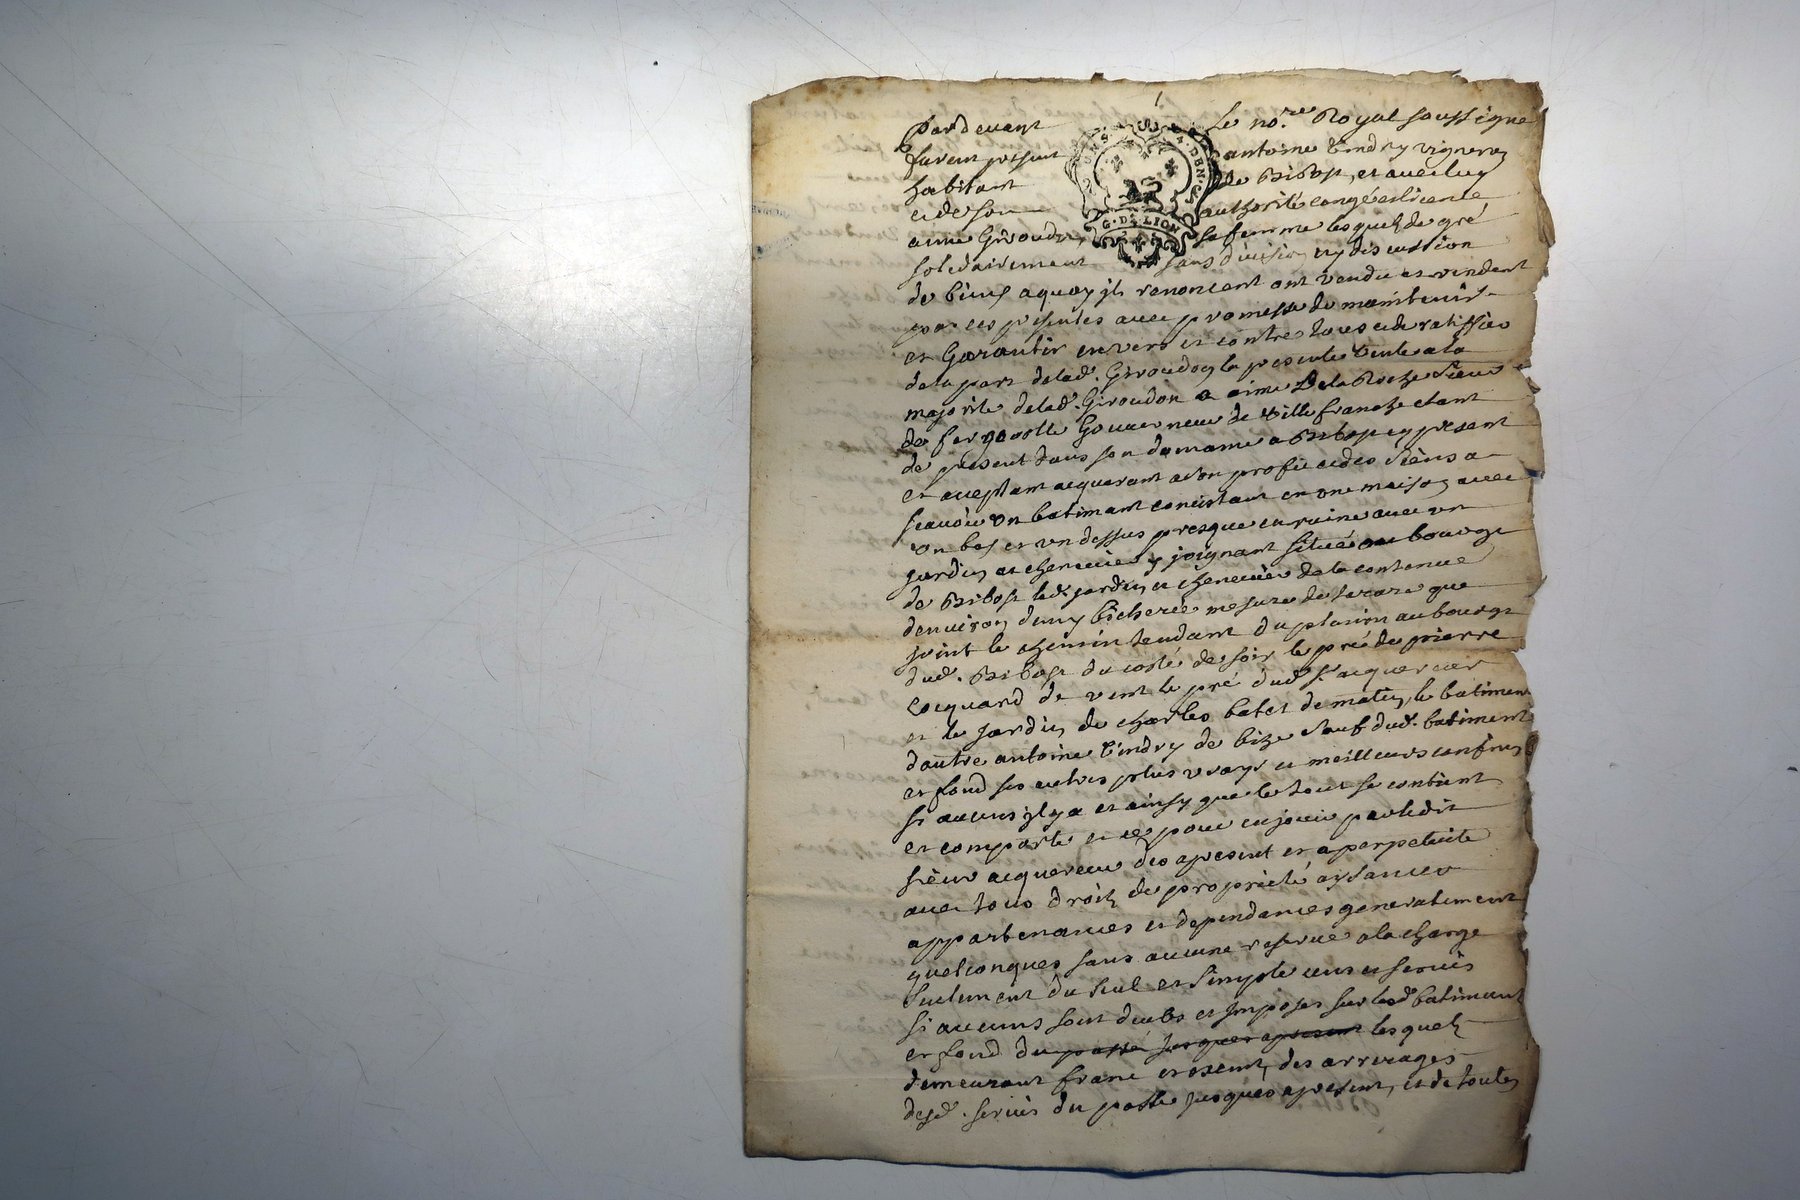 Pardevant Le no.re Royal soussigne
furent present antoine Vindry vigneron
habitant de Bibost, et avec luy
et de son authorité congé et licence
anne Giroudon, sa femme lesquels de gré
G. DE LION
solidairement sans division ny discussion
de biens a quoy ils renoncent ont vendu et vendent
par ces presentes avec promesse de maintenir
et Garantir envers et contre tous et de ratiffier
de la part de lad. Giroudon la presente vente a la
majorité de lad. Giroudon a aimé De la Roche sieur
de Gouverneur de Villefranche etant
de present dans son domaine a Bibost cy present
et acceptant acquerant a son profit et des siens a
scavoir un batimant concistant en une maison avec
un bas et un dessus presque en ruine avec un
jardin et cheneviere y joignant situé au bourge
de Bibost led. jardin et chenevier de la contenue
denviron demy bicherée mesure de tarare que
joint le chemin tendant du plasion au bourge
dud. Bibost du costé de soir le pré de pierre
cocquard de vent le pré dud. s.r acquereur
et le jardin de charles batet de matin, le batiment
dautre antoine Vindry de bize sauf dud. batiment
et fond ses autres plus vrays et meilleurs confins
si aucuns il y a et ainsy que le tout se contient
et comporte et ce pour en jouir par ledit
sieur acquereur des apresent et a perpetuité
avec tous droits de propriété aysances
appartenances et dependances generalement
quelconques sans aucune reserve a la charge
seulement du seul et simple cens et servis
si aucuns sont deubs et imposes sur lesd. batiment
et fond du passé jusques apresent lesquels
demeurant franc et exempt, des arrerages
desd. servis du passé jusques apresent, et de toutes